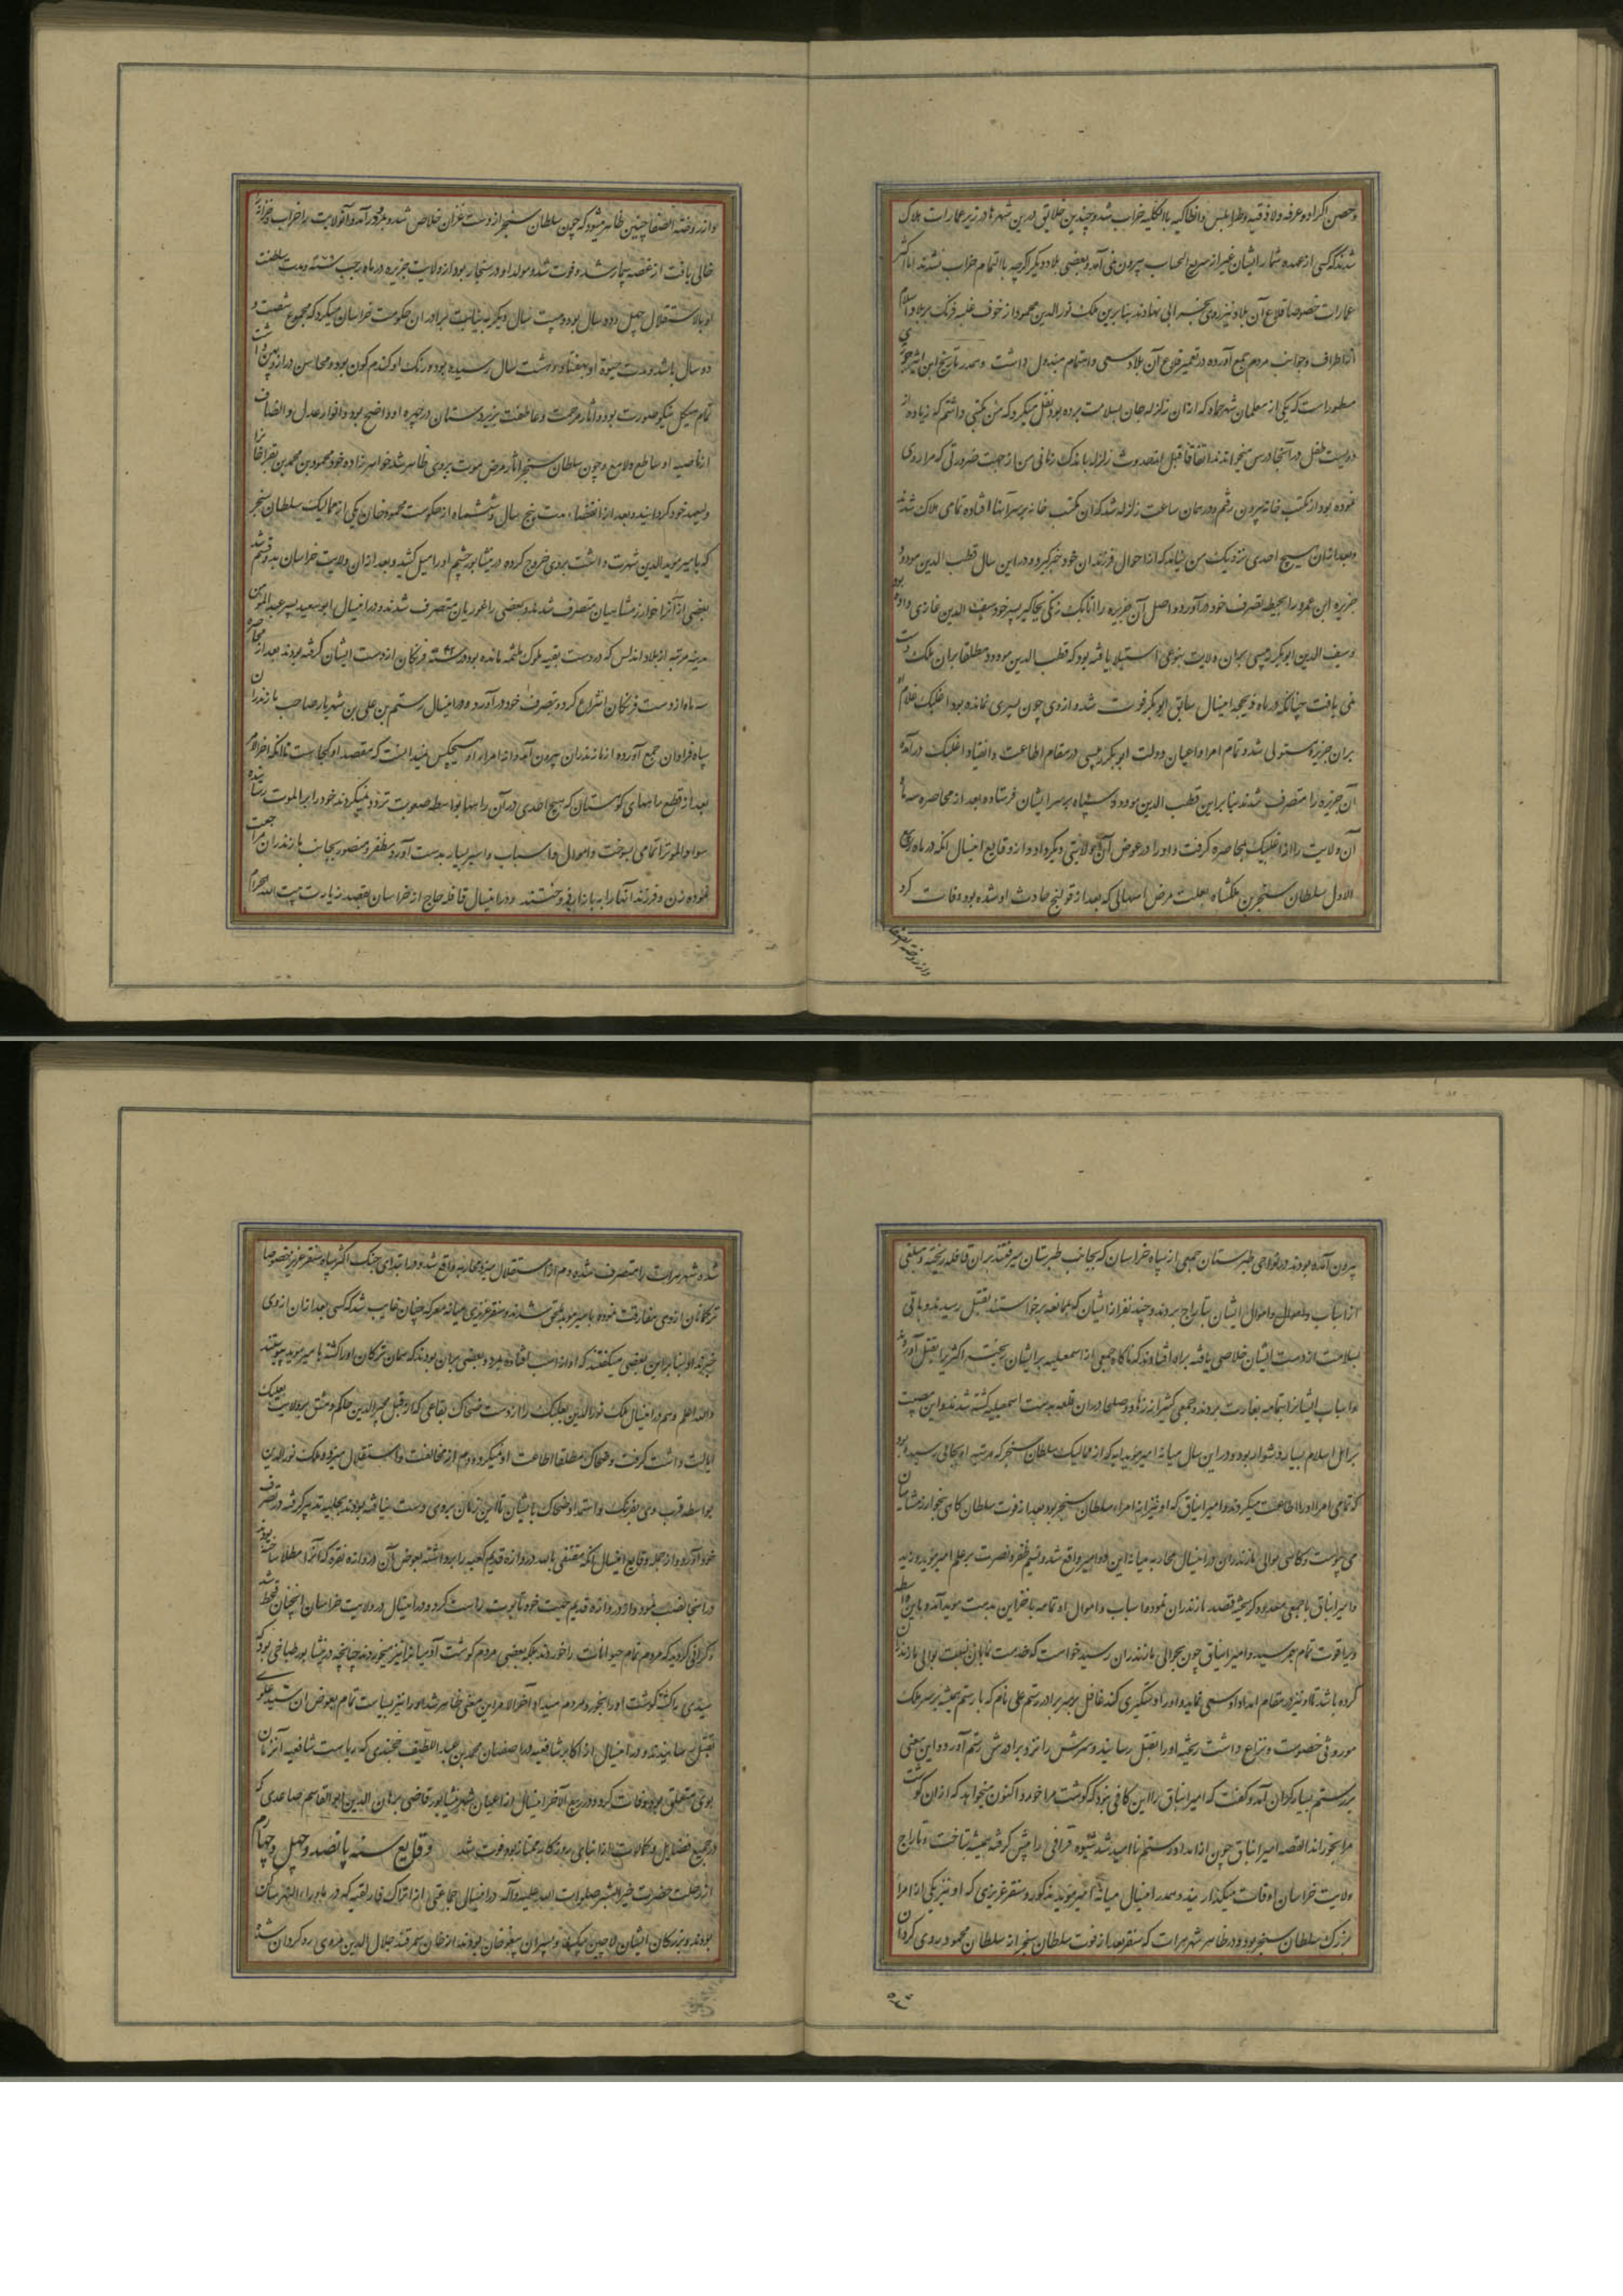 وحصن اکراد و عرقه و لاذقیه و طرابلس و انطاکیه بالکلیه خراب شد و چندین خلایق درین شهرها در زیر عمارات هلاک
شدند که کسی از عهده شمار ایشان غیر از سریع الحساب بیرون نمی آمد و بعضی بلاد دیگر اگرچه بالتمام خراب نشدند اما اکثر
عمارات خصوصا قلاع آن بلاد نیز روی بخرابی نهادند بنابرین ملک نورالدین محمود از خوف غلبه فرنک بر بلاد اسلام
از اطراف و جوانب مردم جمع آورده در تعمیر قلاع آن بلاد سعی و اهتمام مبذول داشت و هم در تاریخ ابن اثیر جزری
مسطور است که یکی از معلمان شهر حماه که ازان زلزله جان بسلامت برده بود نقل میکرد که من مکتبی داشتم که زیاده از
دویست طفل در آنجا درس میخواندند اتفاقا قبل از حدوث زلزله باندک زمانی من از جهت ضرورتی که مرا روی
نموده بود از مکتب خانه بیرون رفتم و در همان ساعت زلزله شد که آن مکتب خانه بر سر آنها افتاده تمامی هلاک شدند
و بعد ازان هیچ احدی نزدیک من نیامد که از احوال فرزندان خود خبر گیرد و در این سال قطب الدین مودود
جزیره ابن عمرو را بحیطه تصرف خود درآورد و اصل آن جزیره را اتابک زنکی بجاگیر پسر خود سیف الدین غازی داده بود
و سیف الدین ابوبکر دبیسی بران ولایت بنوعی استیلا یافته بود که قطب الدین مودود مطلقا بران ملک دست
نمی یافت چنانکه در ماه ذیحجه امسال سابق ابوبکر فوت شد و ازوی چون پسری نمانده بود اغلبک غلام او
بران جزیره مستولی شد و تمام امرا و اعیان دولت ابوبکر دبیسی در مقام اطاعت و انقیاد اغلبک درآمده
آن جزیره را متصرف شدند بنابراین قطب الدین مودود سپاه بر سر ایشان فرستاد و بعد از محاصره سه ماه
آن ولایت را از اغلبک بمحاصره گرفت و او را در عوض آن ولایتی دیگر داد و از وقایع امسال آنکه در ماه ربیع
الاول سلطان سنجر بن ملکشاه بعلت مرض اسهالی که بعد از قولنج حادث او شده بود وفات کرد
و از روضة الصفا
و از روضة الصفا چنین ظاهر میشود که چون سلطان سنجر از دست غزان خلاص شد و بمرو درآمد و آنولایت را خراب و خزانه
خالی یافت از غصه بیمار شد و فوت شد و مولد او در سنجار بود از ولایت جزیره در ماه رجب سنه و مدت سلطنت
او بالاستقلال چهل و دو سال بود و بیست سال دیگر به نیابت برادران حکومت خراسان میکرد که مجموع شصت و
دو سال باشد و مدت حیوة او بهفتاد و هشت سال رسیده بود و رنک او گندم کون بود و محاسن دراز و پهن داشت
تمام هیکل نیکو صورت بود و آثار مرحمت و عاطفت بزیردستان در چهره او واضح بود و انوار عدل و انصاف
از ناصیه او ساطع و لامع و چون سلطان سنجر آثار مرض موت بروی ظاهر شد خواهرزاده خود محمود بن محمد بن بغراخان را
ولیعهد خود گردانید و بعد از انقضاء مدت پنج سال و ششماه از حکومت محمود خان یکی از ممالیک سلطان سنجر
که بامیر مویدالدین شهرت داشت بروی خروج کرده در نیشابور چشم او را میل کشید و بعد ازان ولایت خراسان به دو قسم شد
بعضی از آنرا خوارزمشاهیان متصرف شدند و بعضی را غوریان متصرف شدند و در امسال ابوسعید پسر عبدالمومن
مدینه مریه از بلاد اندلس که در دست بقیه ملوک ملثمه مانده بود و در سنه فرنکان از دست ایشان گرفته بودند بعد از محاصره
سه ماه از دست فرنکان انتزاع کرد و بتصرف خود درآورد و در امسال رستم بن علی بن شهریار صاحب مازندران
سپاه فراوان جمع آورده از مازندران بیرون آمد و از امراء او هیچکس نمیدانست که مقصد او کجاست تا آنکه آخرالامر
بعد از قطع راههای کوهستان که هیچ احدی در آن راهها بواسطه صعوبت تردد نمیکردند خود را بر الموت رسانیده
سواد الموترا تمامی بسوخت و اموال و اسباب و اسیر بسیار بدست آورد و مظفر و منصور بجانب مازندران مراجعت
نموده زن و فرزند آنها را به بازارها فروختند و در امسال قافله حاج از خراسان بقصد زیارت بیت الله الحرام
بیرون آمده بودند در نواحی طبرستان جمعی از سپاه خراسان که بجانب طبرستان میرفتند بران قافله ریخته و مبلغی
از اسباب و اموال ایشان بتاراج بردند و چند نفر از ایشان که بممانعه برخاستند بقتل رسیدند و باقی
بسلامت از دست ایشان خلاصی یافته براه افتادند که ناگاه جمعی از اسمعیلیه بر ایشان ریخته اکثر را بقتل آوردند
و اسباب ایشانرا بتمامه بغارت بردند و جمعی کثیر از زهاد و صلحا دران قافله بدست اسمعیلیه کشته شدند و این مصیبت
بر اهل اسلام بسیار دشوار بود و در این سال میانه امیر موید ایبه که از ممالیک سلطان سنجر که مرتبه او بجائی رسیده بود
که تمامی امرا او را اطاعت میکردند و امیر ایناق که او نیز از امراء سلطان سنجر بود بعد از فوت سلطان گاهی بخوارزمشاهیان
می پیوست و گاهی بوالی مازندران در امسال محاربه میانه این دو امیر واقع شد و نسیم ظفر و نصرت بر علم امیر موید وزید
و امیر ایناق با جمعی معدود گریخته قصد مازندران نمود و اسباب و اموال او بتمامه با خزاین بدست موید آمد و باین واسطه
ویرا قوت تمام بهم رسید و امیر ایناق چون بحوالی مازندران رسید خواست که خدمت نمایان نسبت بوالی مازندران
کرده باشد تا او نیز در مقام امداد او سعی نماید و او را دستگیری کند غافل بر سر برادر رستم علی نام که با رستم همیشه بر سر ملک
موروثی خصومت و نزاع داشت ریخته او را بقتل رسانید و سرش را نزد برادرش رستم آورد و این معنی
بر رستم بسیار گران آمد و گفت که امیر ایناق را این کافی نبود که گوشت مرا خورد و اکنون میخواهد که ازان گوشت
مرا بخوراند القصه امیر ایناق چون از امداد رستم ناامید شد شیوه قزاقی را پیش گرفته همیشه بتاخت و تاراج
ولایت خراسان اوقات میگذرانید و هم در امسال میانه امیر موید مذکور و سنقر عزیزی که او نیز یکی از امراء
بزرک سلطان سنجر بود و در ظاهر شهر هرات که سنقر بعد از فوت سلطان سنجر از سلطان محمود روی گردان
شده
شده شهر هرات را متصرف شده و دم از استقلال میزد محاربه واقع شد و در ابتدای جنک اکثر سپاه سنقر عزیزی خصوصا
ترکمانان ازوی مفارقت نموده بامیر موید ملحق شدند و سنقر عزیزی میانه معرکه چنان غایب شد که کسی بعد ازان ازوی
خبر نداد بنابراین بعضی میگفتند که او از اسب افتاده بمرد و بعضی بران بودند که همان ترکان او را کشته بامیر موید پیوستند
والله اعلم و هم در امسال ملک نورالدین بعلبک را از دست ضحاک بقاعی که از قبل مجیرالدین حاکم دمشق بر ولایت بعلبک
ایالت داشت گرفت و ضحاک مطلقا اطاعت او نمیکرد و دم از مخالفت و استقلال میزد و ملک نورالدین
بواسطه قرب وی بفرنک و استمداد ضحاک بایشان تا این زمان بروی دست نیافته بود بحیله و تدبیر گرفته در تصرف
خود آورد و از جمله وقایع امسال آنکه مقتفی بالله دروازه قدیم کعبه را برداشته بعوض آن دروازه نقره که آنرا مطلا ساخته بودند
در آنجا نصب نمود و از دروازه قدیم جهت خود تابوت راست کرد و در امسال در ولایت خراسان آنچنان قحط شد
و گرانی گردید که مردم تمام حیوانات را خوردند بلکه بعضی مردم گوشت آدمیانرا نیز میخوردند چنانچه در نیشابور طباخی بود که
سیدی را کشته گوشت او را بخورد مردم میداد آخرالامر این معنی ظاهر شد او را نیز بسیاست تمام بعوض آن سید علوی
بقتل رسانیدند و در امسال از اکابر شافعیه در اصفهان محمد بن عبداللطیف خجندی که ریاست شافعیه آنزمان
بوی متعلق بود وفات کرد و در ربیع الآخر امسال از اعیان شهر نیشابور قاضی برهان الدین ابوالقاسم صاعدی که
در جمیع فضایل و کمالات از ابنای روزگار ممتاز بود فوت شد وقایع سنه پانصد و چهل و چهارم
از رحلت حضرت خیر البشر صلوات الله علیه و آله در امسال جماعتی از اتراک قارلقیه که در ماوراءالنهر ساکن
بودند و بزرگان ایشان لاچین بیک و پسران بیغو خان بودند از خان سمرقند جلال الدین علی روی گردان شده